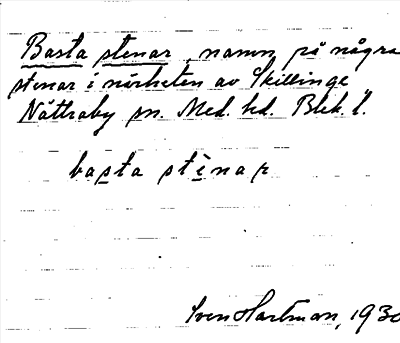 Basta stenar, namn på några
stenar i närheten av Skillinge
Nättraby sn. Med. hd. Blek. l.
basta stenar
Sven Hartman, 1930